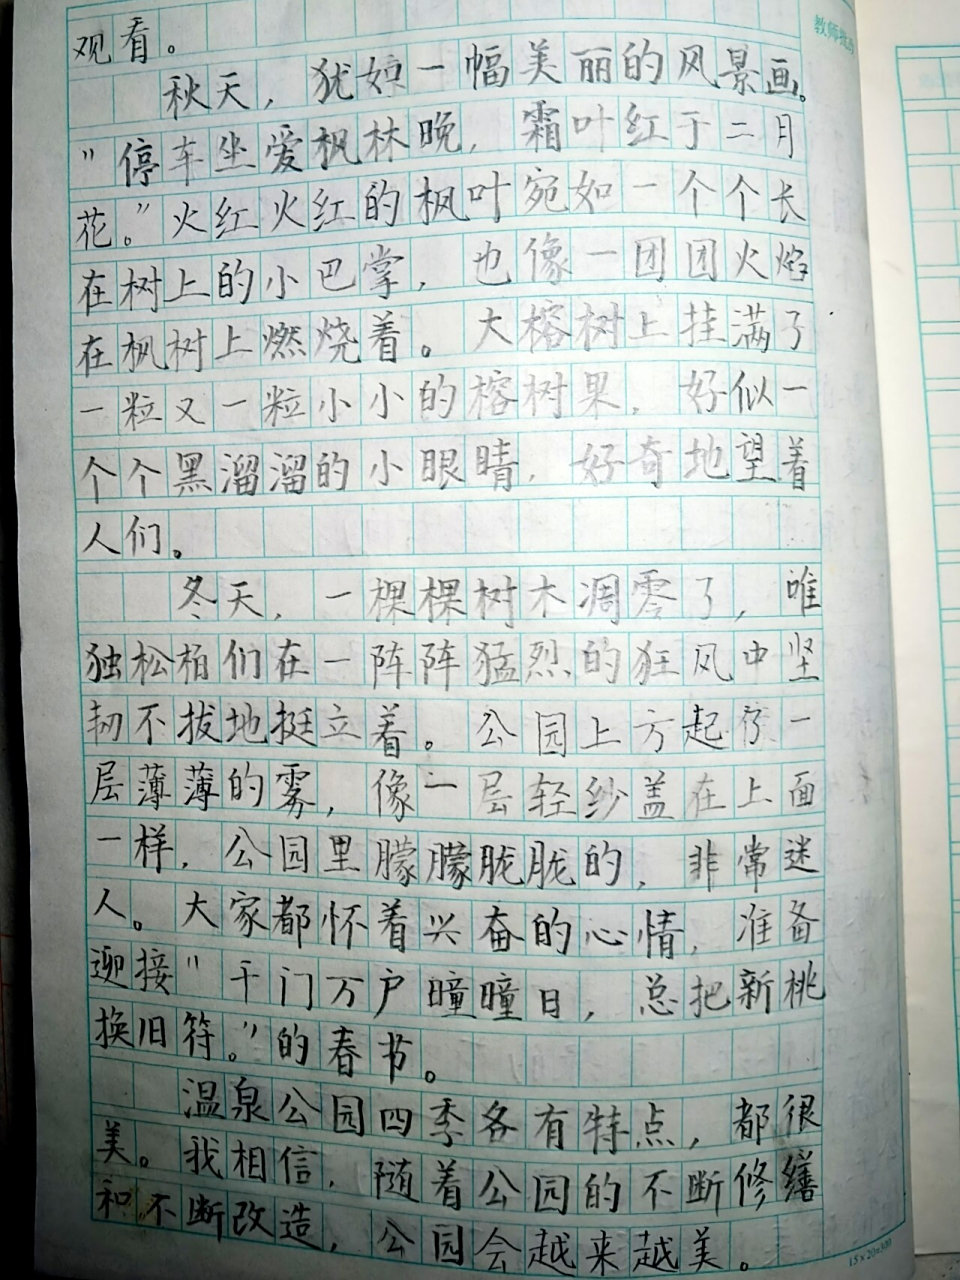 观看。
秋天，犹如一幅美丽的风景画。
"停车坐爱枫林晚，霜叶红于二月
花。"火红火红的枫叶宛如一个个长
在树上的小巴掌，也像一团团火焰
在枫树上燃烧着。大榕树上挂满了
一粒又一粒小小的榕树果，好似一
个个黑溜溜的小眼睛，好奇地望着
人们。
冬天，一棵棵树木凋零了，唯
独松柏们在一阵阵猛烈的狂风中坚
韧不拔地挺立着。公园上方起了一
层薄薄的雾，像一层轻纱盖在上面
一样，公园里朦朦胧胧的，非常迷
人。大家都怀着兴奋的心情，准备
迎接"千门万户曈曈日，总把新桃
换旧符。"的春节。
温泉公园四季各有特点，都很
美。我相信，随着公园的不断修缮
和不断改造，公园会越来越美。
15×20=300